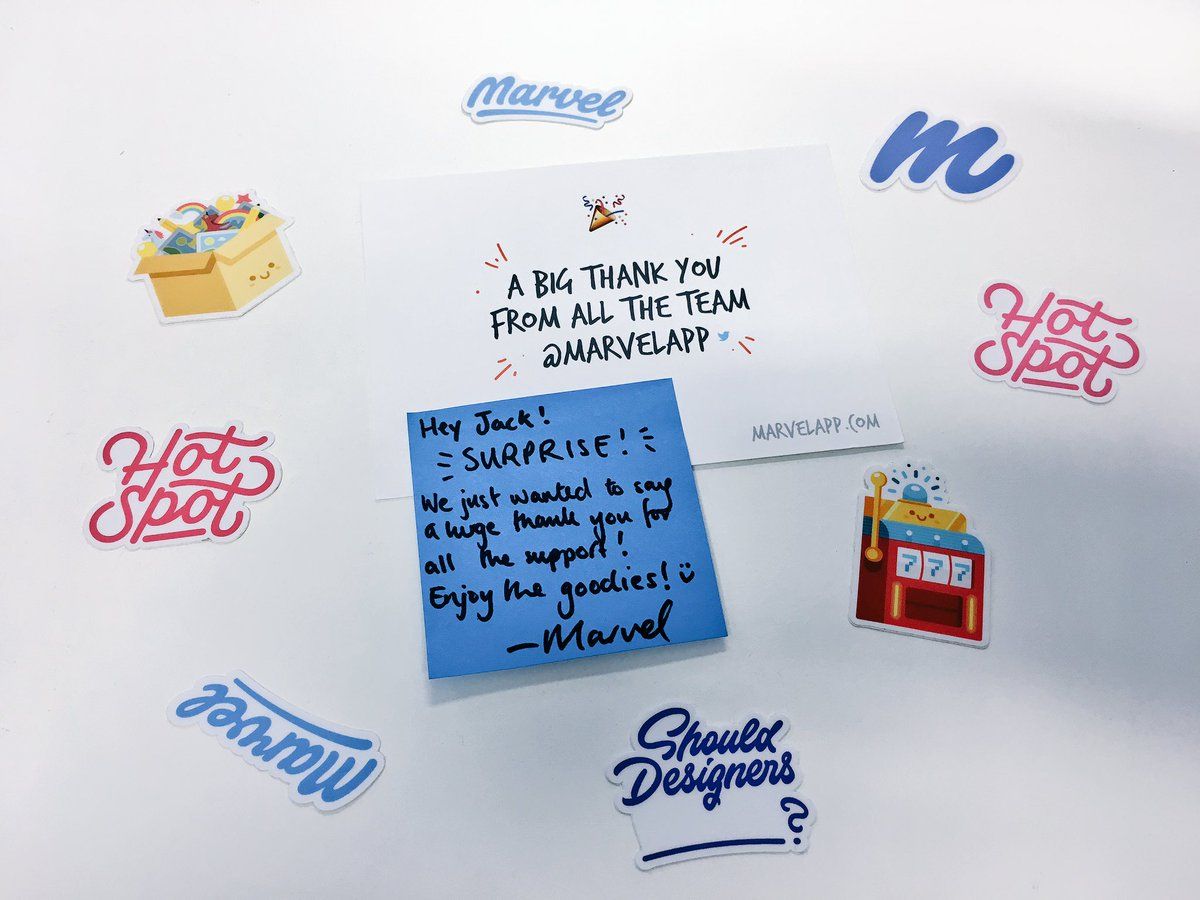 Marvel
m
A BIG THANK YOU
FROM ALL THE TEAM
@MARVELAPP
MARVELAPP.COM
Hot
Spot
Hey Jack!
SURPRISE!
We just wanted to say
a huge thank you for
all the support!
Enjoy the goodies!
—Marvel
Hot
Spot
777
Marvel
Should
Designers
?